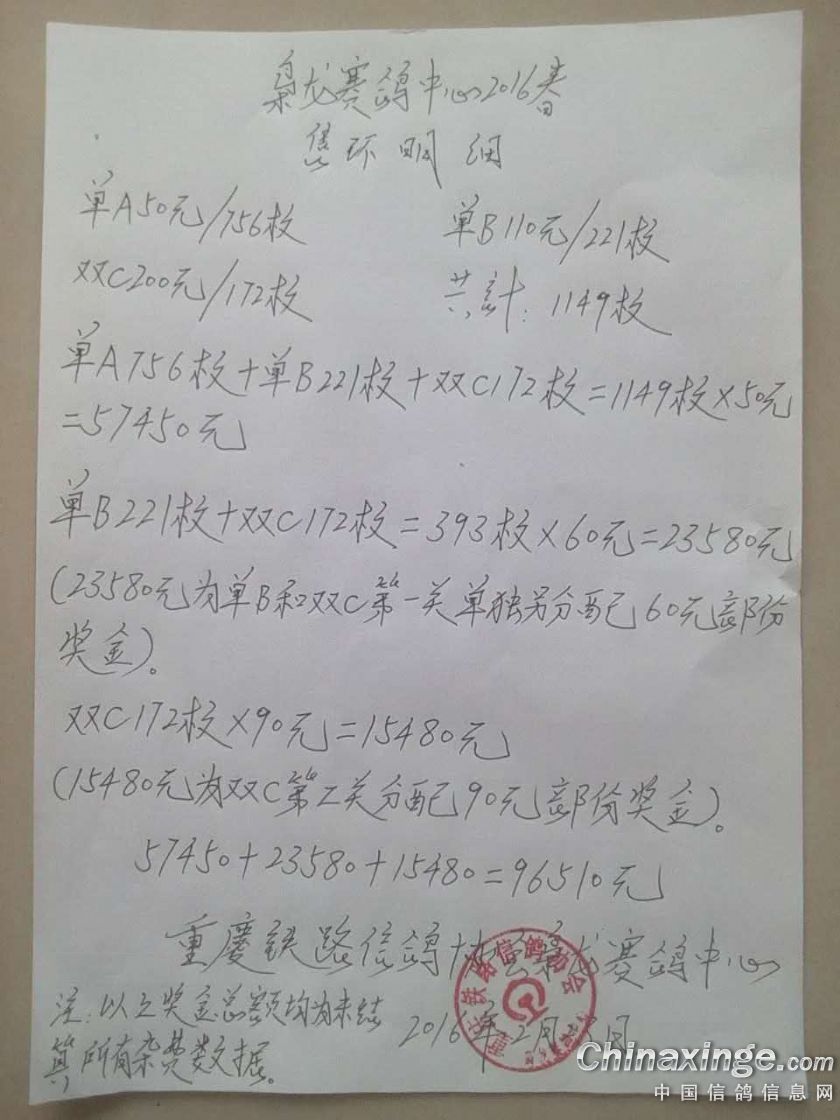 枭龙赛鸽中心2016春
售环明细
单A50元/756枚 单B110元/221枚
双C200元/172枚 共計:1149枚
单A756枚+单B221枚+双C172枚=1149枚×50元
=57450元
单B221枚+双C172枚=393枚×60元=23580元
(23580元为单B和双C第一关单独另分配60元部份
奖金)。
双C172枚×90元=15480元
(15480元为双C第二关分配90元部份奖金)。
57450+23580+15480=96510元
重慶铁路信鸽协会枭龙赛鸽中心
注:以上奖金总额均为未结
算所有杂费数据。
2016年2月 日
Chinaxinge.com
中国信鸽信息网